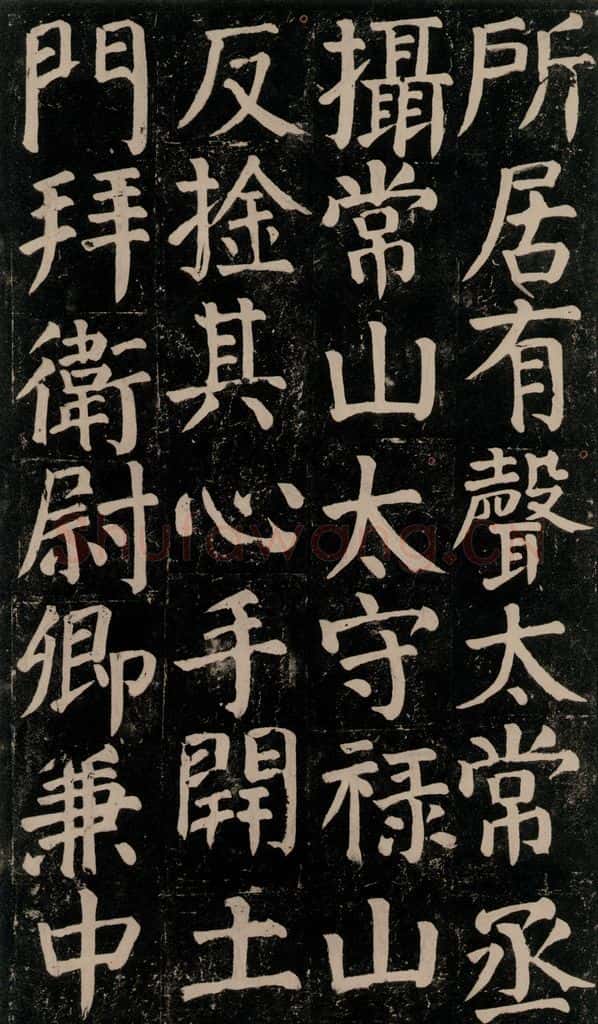 所居有聲太常丞
攝常山太守禄山
反捦其心手開土
門拜衛尉卿兼中
Shufawang.cn